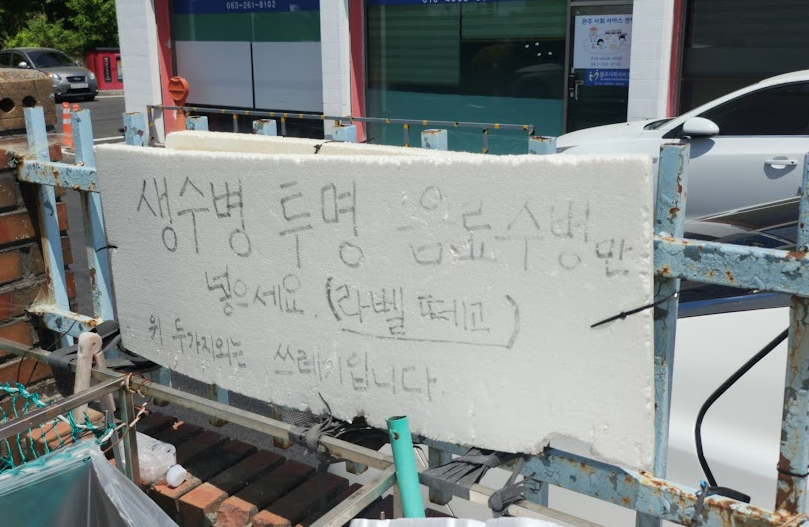 063-261-8102
완주 사회 서비스 센터
생수병 투명 음료수병만
넣으세요. (라벨 떼고)
위 두가지외는 쓰레기입니다.